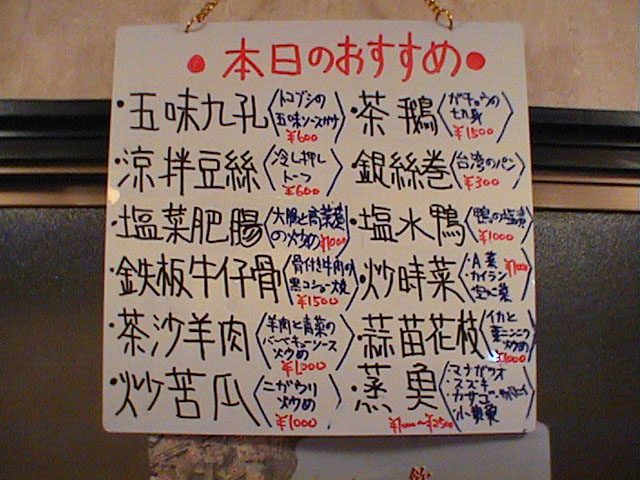 本日のおすすめ
・五味九孔〈トコブシの五味ソースカケ〉¥600
・茶鵝〈ガチョウの七刀身〉¥1500
・涼拌豆絲〈冷し押しトーフ〉¥600
銀絲巻〈台湾のパン〉¥300
・塩菜肥腸〈大腸と高菜漬の炒め〉¥1000
・塩水鴨〈鴨の塩漬〉¥1000
・鉄板牛仔骨〈骨付き牛肉の黒コショー焼〉¥1500
・炒時菜〈・A菜 カイラン 空心菜〉¥1000
・茶沙羊肉〈羊肉と青菜のバーベキューソース炒め〉¥1,000
・蒜苗花枝〈イカと葉ニンニク炒め〉¥1000
・炒苦瓜〈ニガウリ炒め〉¥1000
・蒸魚〈・マナガツオ ・スズキ ・カサゴ〉¥1000〜¥2500